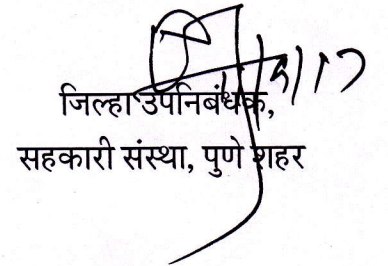 जिल्हा उपनिबंधक,
सहकारी संस्था, पुणे शहर